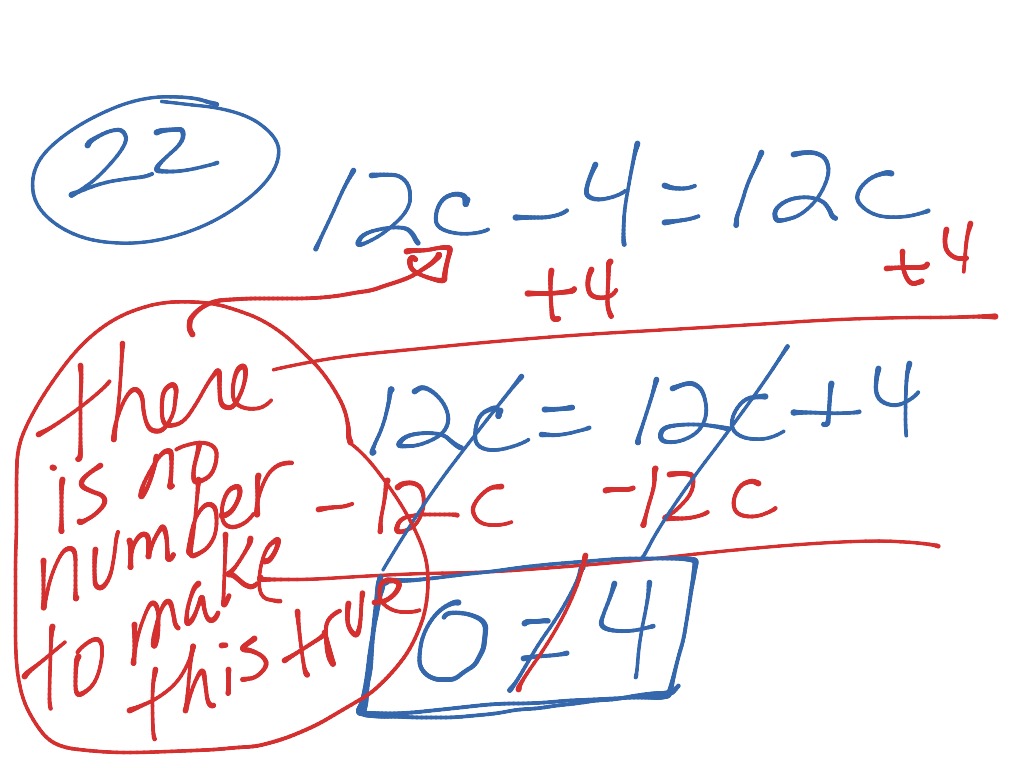 22
12c - 4 = 12c
+4 +4
12c = 12c + 4
-12c -12c
0 ≠ 4
there
is no
number
to make
this true